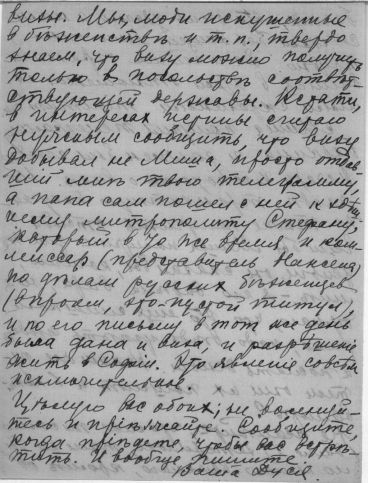 визы. Мы, люди искушенные
в бѣженствѣ и т.п., твердо
знаем, что визу можно получить
только в посольствѣ соотвѣт-
ствующей державы. Кстати,
в интересах истины считаю
нужным сообщить, что визу
добывал не Миша, просто отдав-
ший мнѣ твою телеграмму,
а папа сам пошел с ней к здѣш-
нему митрополиту Стефану,
который в то же время и ком-
миссар (представитель Нансена)
по дѣлам русских бѣженцев
(впрочем, это пустой титул),
и по его письму в тот же день
была дана и виза, и разрѣшенiе
жить в Софiи. Это явленiе совсѣм
исключительное.
Цѣлую вас обоих; не волнуй-
тесь и прiѣзжайте. Сообщите,
когда прiѣдете, чтобы вас встрѣ-
тить. И вообще пишите.
Ваша Дуся.